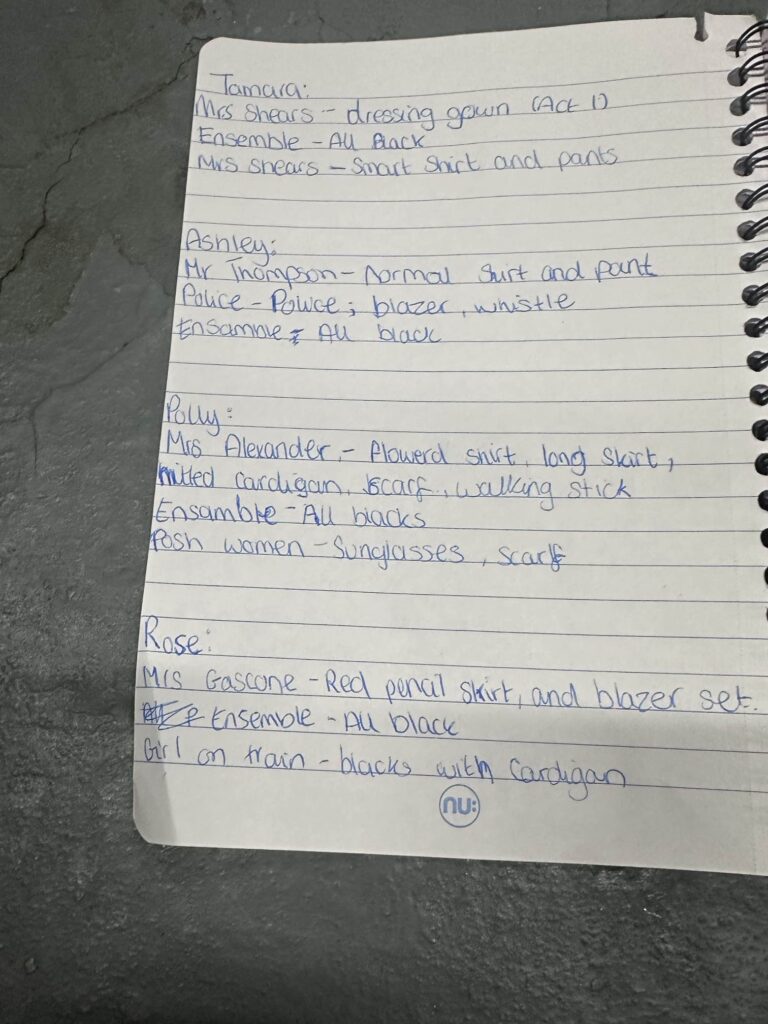 Tamara:
Mrs Shears - dressing gown (Act 1)
Ensemble - All Black
Mrs Shears - Smart Shirt and pants
Ashley:
Mr Thompson - Normal Shirt and pant
Police - Police; blazer, whistle
Ensamble - All black
Polly:
Mrs Alexander - flowerd shirt, long skirt,
nitted cardigan, scarf, walking stick
Ensamble - All blacks
Posh women - Sunglasses, scarf
Rose:
Mrs Gascone - Red pencil skirt, and blazer set.
Ensemble - All black
Girl on train - blacks with Cardigan
nu: